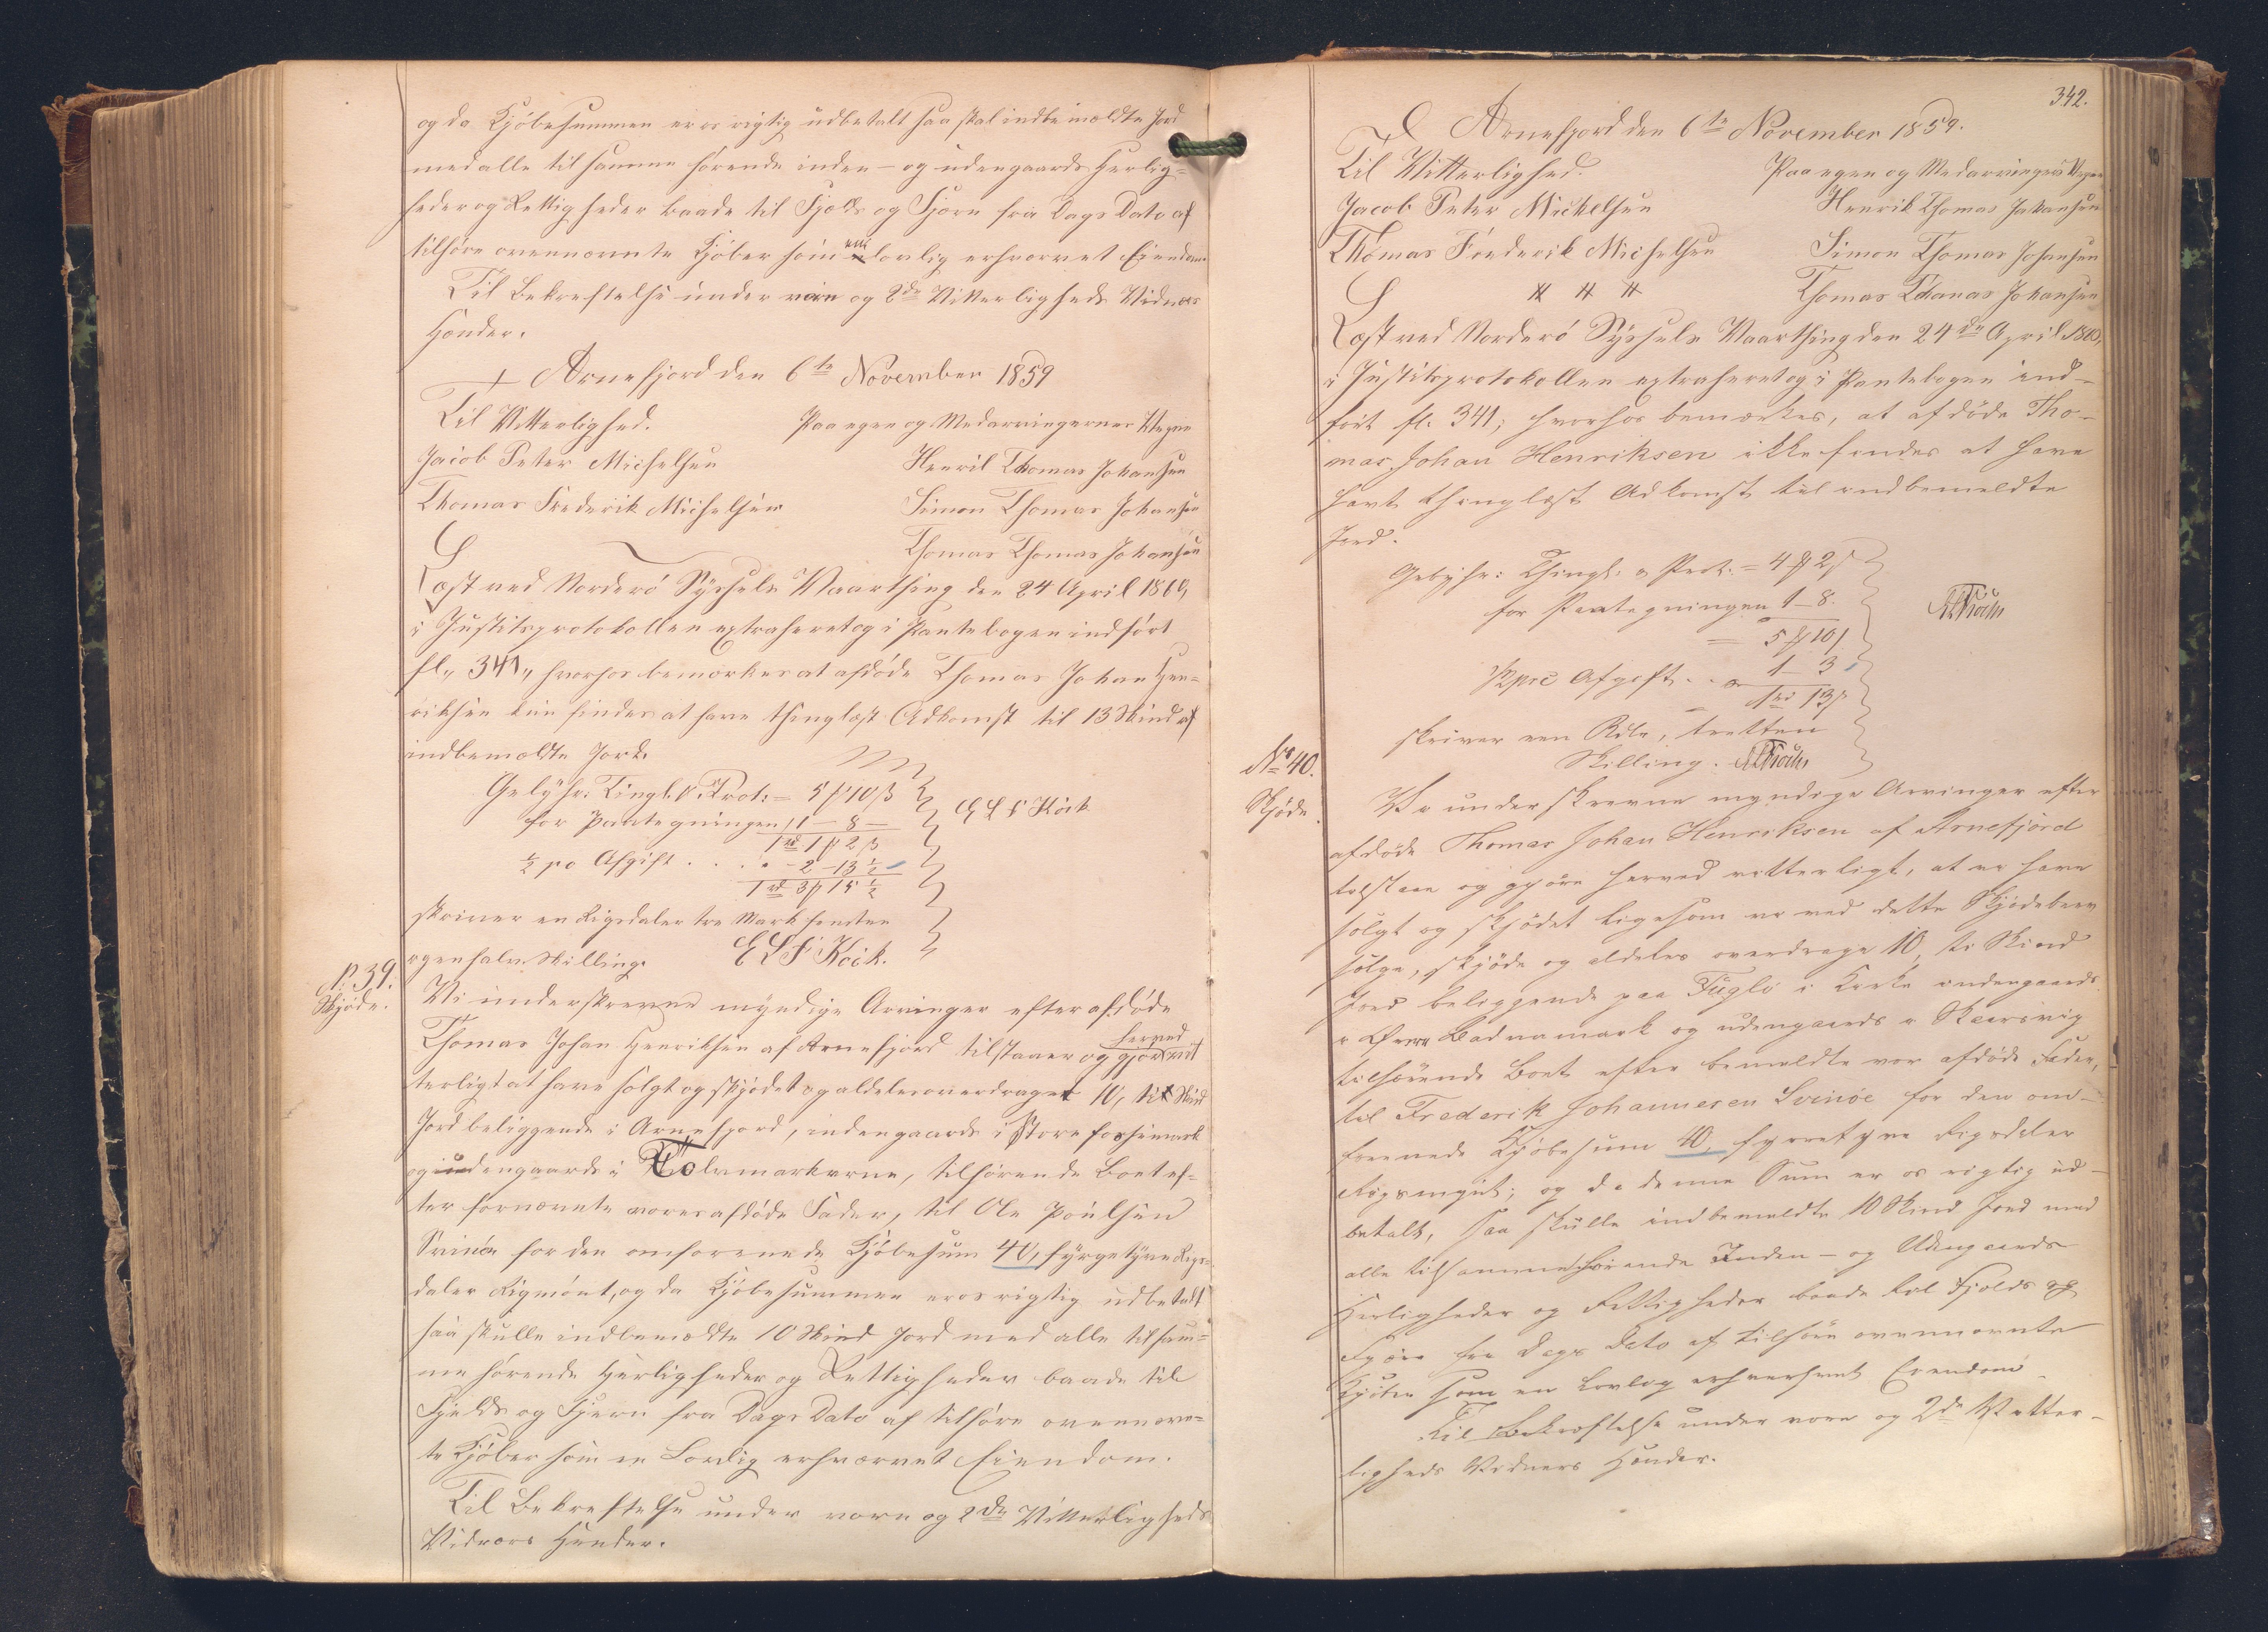 og da Kjöbesummen er os rigtig udbetalt saa skal indbemældte Jord
med alle til samme hörende inden- og udengaards Herlig=
heder og Rettigheder baade til Fjelds og Fjære fra Dags Dato af
tilhöre ovennævnte Kjöber som en lovlig erhvervet Eiendom
Til Bekræftelse under vore og 2de Vitterligheds Vidners
Hænder.
Arnefjord den 6te November 1859
Til Vitterlighed. Paa egen og Medarvingernes Vegne
Jacob Peter Michelsen Henrik Thomas Johansen
Thomas Frederik Michelsen Simon Thomas Johansen
Thomas Thomas Johansen
Læst ved Norderö Syssels Vaarthing den 24 April 1860,
i Justitsprotokollen extraheret og i Pantebogen indfört
fl. 341, hvorhos bemærkes at afdöde Thomas Johan Hen=
riksen kun findes at have thinglæst Adkomst til 13 Skind af
indbemældte Jord.
Gebyhr: Tingl. & Prot: = 5 ß 10 ß
for Paategningen 1 - 8 -
1 rd 1 ß 2 ß
½ pc Afgift . . . - 2 - 13 ½
1 rd 3 ß 15 ½
E L F Kock
skriver en Rigsdaler tre Mark femten
og en halv Skilling. E L F Kock.
N: 39.
Skjöde.
Vi underskrevne myndige Arvinger efter afdöde
Thomas Johan Henriksen af Arnefjord tilstaaer og gjör herved vit
terligt at have solgt og skjödet og aldeles overdraget 10, ti Skind
Jord beliggende i Arnefjord, indengaards i Storefossemark
og udengaards i Tolvmarkerne, tilhörende Boet ef=
ter fornævnte vores afdöde Fader, til Ole Poulsen
Svinöe for den omforenede Kjöbesum 40, fyrgetyve Rigs=
daler Rigmönt, og da Kjöbesummen er os rigtig udbetalt
saa skulle indbemældte 10 Skind Jord med alle til sam=
me hörende Herligheder og Rettigheder baade til
Fjelds og Fjære fra Dags Dato af tilhöre ovennævn=
te Kjöber som en Lovlig erhvervet Eiendom.
Til Bekræftelse under vore og 2de Vitterligheds
Vidners Hænder.
342.
Arnefjord den 6te November 1859.
Til Vitterlighed. Paa egen og Medarvingers Vegne
Jacob Peter Mickelsen Henrik Thomas Johansen
Thomas Frederik Michelsen Simon Thomas Johansen
Thomas Thomas Johansen
Læst ved Norderö Syssels Vaarthing den 24de April 1860,
i Justitsprotokollen extraheret og i Pantebogen ind-
fört fl. 341; hvorhos bemærkes, at afdöde Tho-
mas Johan Henriksen ikke findes at have
havt thinglæst Adkomst til indbemeldte
Jord.
Gebyhr: Thingl: & Prot: = 4 ß 2 ß
for Paategningen 1 - 8.
= 5 ß 10 ß
½ pc Afgift . . 1 - 3
1 rd 13 ß
skriver een Rdlr, tretten
Skilling.
No 40.
Skjöde.
Vi underskrevne myndige Arvinger efter
afdöde Thomas Johan Henriksen af Arnefjord
tilstaae og gjöre herved vitterligt, at vi have
solgt og skjödet ligesom vi ved dette Skjödebrev
sælge, skjöde og aldeles overdrage 10, ti Skind
Jord beliggende paa Fuglö i Kirke indengaards
i Övre Badnamark og udengaards i Skaarsvig
tilhörende Boet efter bemeldte vor afdöde Fader,
til Frederik Johannesen Svinöe for den om-
forenede Kjöbesum 40, fyrretyve Rigsdaler
Rigsmynt; og da denne Sum er os rigtig ud-
betalt, saa skulle indbemeldte 10 Skind Jord med
alle tilsammehörende Inden- og Udengaards
Herligheder og Rettigheder baade til Fjelds og
Fjære fra Dags Dato af tilhöre ovennævnte
Kjöber som en Lovlig erhvervet Eiendom.
Til Bekræftelse under vore og 2de Vitter-
ligheds Vidners Hænder.